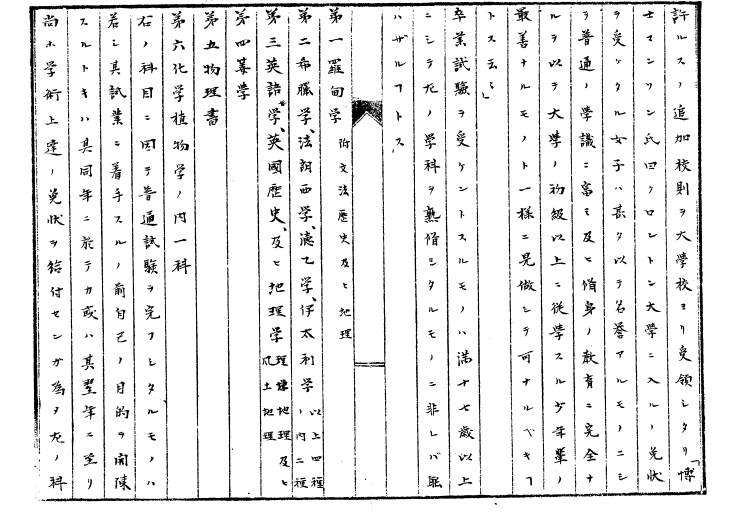 許ルスノ追加校則ヲ大學校ヨリ受領シタリ「博
士マンソン氏曰クロンドン大學ニ入ルノ免狀
ヲ受ケタル女子ハ甚タ以テ名誉アルモノニシ
テ普通ノ學識ニ富ミ及ヒ脩身ノ教育ニ完全ナ
ルヲ以テ大學ノ初級以上ニ從學スル少年輩ノ
最善ナルモノト一樣ニ見做シテ可ナルベキヿ
トス云々」
卒業試驗ヲ受ケントスルモノハ滿十七歳以上
ニシテ左ノ學科ヲ熟脩シタルモノニ非レバ
ハザルヿトス
第一羅甸学 附文法歴史及ヒ地理
第二希臘学、法朗西学、獨乙学、伊太利学 以上四種ノ内二種
第三英語学、英國歴史、及ヒ地理学 理像地理及ヒ風土地理
第四筭学
第五物理書
第六化学植物学ノ内一科
右ノ科目ニ因テ普通試驗ヲ完フシタルモノハ
若シ其試業ニ着手スルノ前自己ノ目的ヲ開陳
スルトキハ其同年ニ於テカ或ハ其翌年ニ至リ
尚ホ学術上達ノ免狀ヲ給付センガ為メ左ノ科